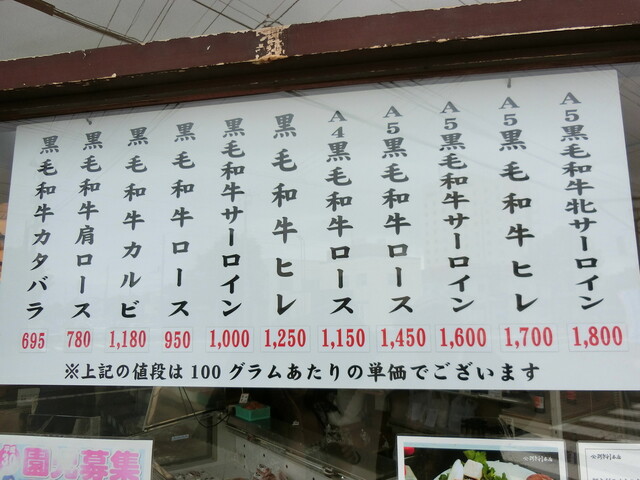 A5黒毛和牛牝サーロイン
1,800
A5黒毛和牛ヒレ
1,700
A5黒毛和牛サーロイン
1,600
A5黒毛和牛ロース
1,450
A4黒毛和牛ロース
1,150
黒毛和牛ヒレ
1,250
黒毛和牛サーロイン
1,000
黒毛和牛ロース
950
黒毛和牛カルビ
1,180
黒毛和牛肩ロース
780
黒毛和牛カタバラ
695
※上記の値段は100グラムあたりの単価でございます
園児募集